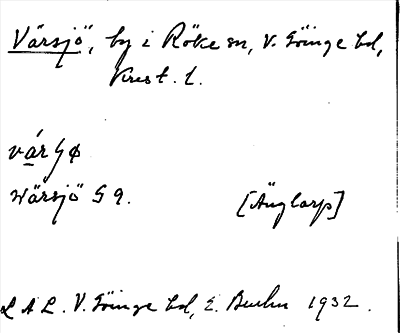 Värsjö, by i Röke sn, V. Göinge hd,
Krist. l.
Wärsjö 59. [Änglarp]
LAL. V. Göinge hd, E. 1932.